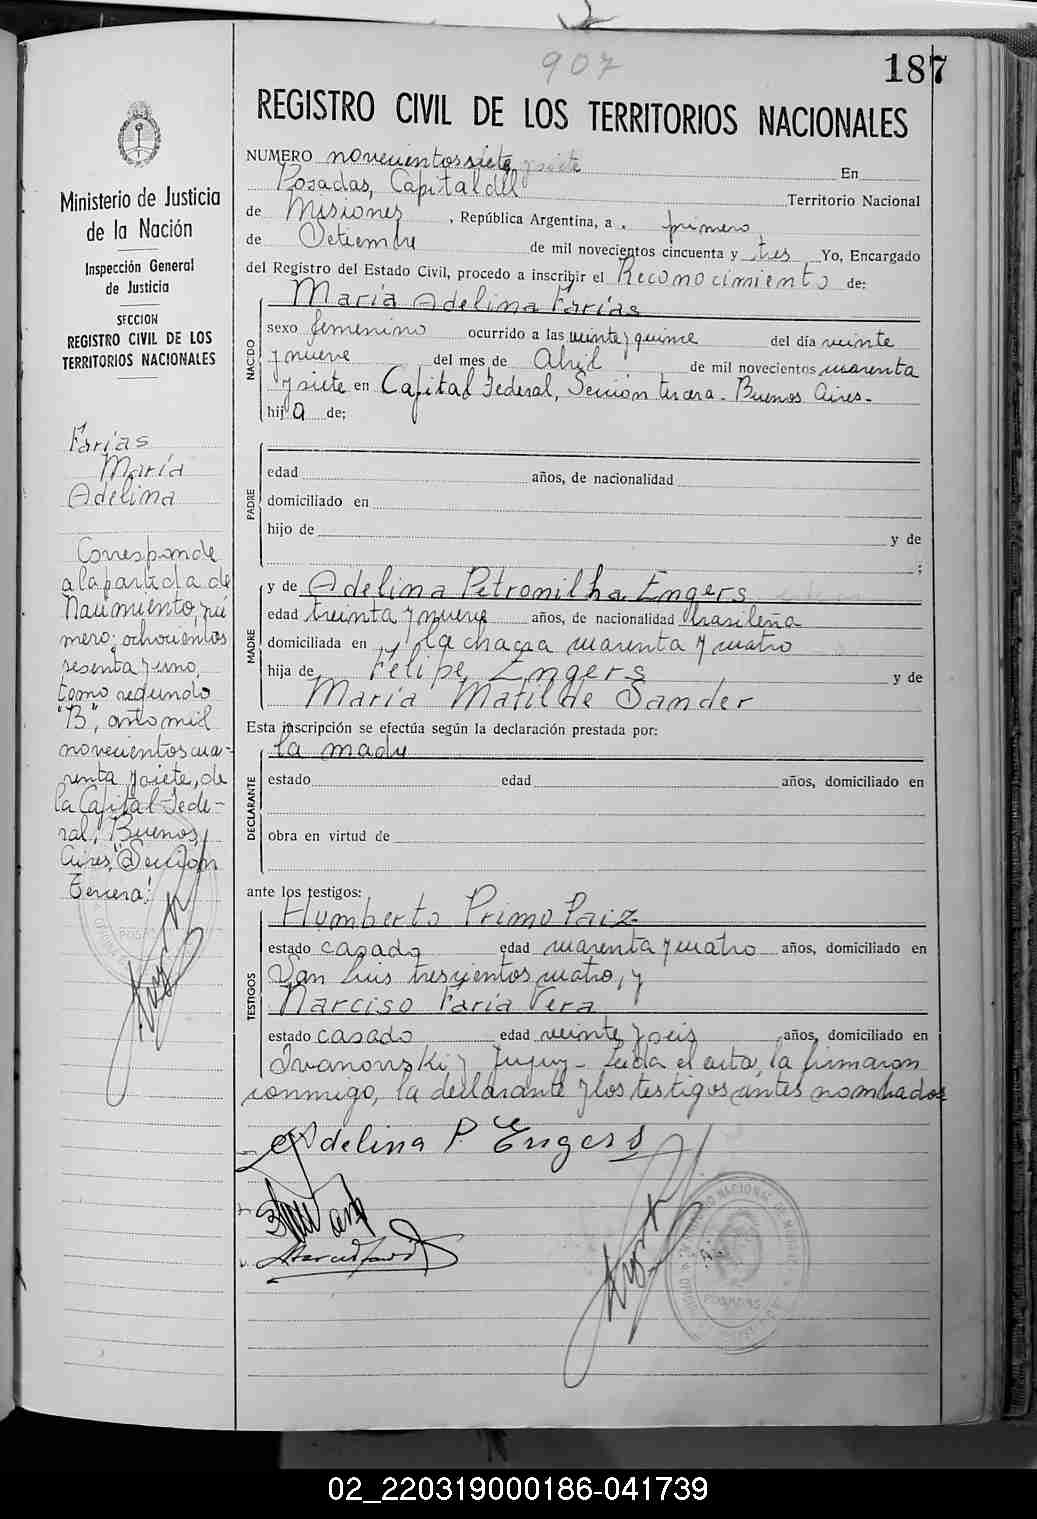 907
187
REGISTRO CIVIL DE LOS TERRITORIOS NACIONALES
NUMERO novecientos siete En
Posadas, Capital del Territorio Nacional
de Misiones, República Argentina, a primero
de Setiembre de mil novecientos cincuenta y tres Yo, Encargado
del Registro del Estado Civil, procedo a inscribir el Reconocimiento de:
María Adelina Farías
NACIDO
sexo femenino ocurrido a las veinte y quince del día veinte
y nueve del mes de Abril de mil novecientos cuarenta
y siete en Capital Federal, Sección tercera. Buenos Aires.
hija de;
PADRE
edad años, de nacionalidad
domiciliado en
hijo de y de
;
MADRE
y de Adelina Petronilha Engers
edad treinta y nueve años, de nacionalidad brasileña
domiciliada en la chacra cuarenta y cuatro
hija de Felipe Engers y de
María Matilde Sander
Esta inscripción se efectúa según la declaración prestada por:
la madre
DECLARANTE
estado edad años, domiciliado en
obra en virtud de
ante los testigos:
Humberto Primo Paiz
TESTIGOS
estado casado edad cuarenta y cuatro años, domiciliado en
San Luis trescientos cuatro, y
Narciso Faría Vera
estado casado edad veinte y seis años, domiciliado en
Ivanovski y Jujuy - Leída el acta, la firmaron
conmigo, la declarante y los testigos antes nombrados
Adelina P. Engers
Ministerio de Justicia
de la Nación
Inspección General
de Justicia
SECCION
REGISTRO CIVIL DE LOS
TERRITORIOS NACIONALES
Farías
María
Adelina
Corresponde
a la partida de
Nacimiento, nú
mero: ochocientos
sesenta y uno,
tomo segundo
"B", año mil
novecientos cua-
renta y siete, de
la Capital Fede-
ral, Buenos
Aires, "Sección
Tercera".
POSADAS
02_220319000186-041739